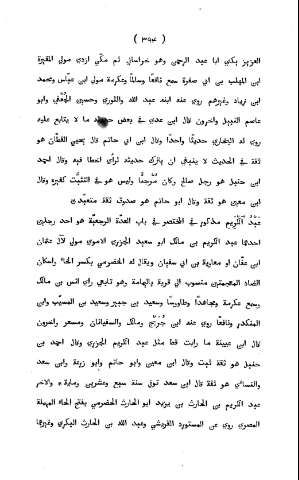 ( ٣٩٤ )
العزيز بكنى ابا عبد الرحمن وهو خراسانى ثم مكى ازدى مولى المغيرة
ابن المهلب بن ابى صفرة سمع نافعا وسالما وعكرمة مولى ابن عباس ومحمد
ابن زياد وغيرهم روى عنه ابنه عبد الله والثورى وحسين الجعفى وابو
عاصم النبيل واخرون قال ابن عدى فى بعض حديثه ما لا يتابع عليه
روى له البخارى حديثا واحدا وقال ابن ابى حاتم قال يحيى القطان هو
ثقة فى الحديث لا ينبغى ان يترك حديثه لرأى اخطا فيه وقال احمد
ابن حنبل هو رجل صالح وكان مرجئا وليس هو فى التثبت كغيره وقال
ابن معين هو ثقة وقال ابو حاتم هو صدوق ثقة متعبدى
عبد الكريم مذكور فى المختصر فى باب العدة الرجعية هو احد رجلين
احدهما عبد الكريم بن مالك ابو سعيد الجزرى الاموى مولى لآل عثمان
ابن عفان او معاوية بن ابى سفيان ويقال له الخضرمى بكسر الخاء واسكان
الضاد المعجمتين منسوب الى قرية باليمامة وهو تابعى راى انس بن مالك
وسمع عكرمة ومجاهدا وطاوسا وسعيد بن جبير وسعيد بن المسيب وابن
المنكدر ونافعا روى عنه ابن جريج ومالك والسفيانان ومسعر واخرون
قال ابن عيينة ما رايت قط مثل عبد الكريم الجزرى وقال احمد بن
حنبل هو ثقة ثبت وقال ابن معين وابو حاتم وابو زرعة وابن سعد
والنسائى هو ثقة قال ابن سعد توفى سنة سبع وعشرين وماية والاخر
عبد الكريم بن الحارث بن يزيد ابو الحارث الحضرمى بفتح الحاء المهملة
المصرى روى عن المستورد القرشى وعبد الله بن الحارث البكرى وغيرها